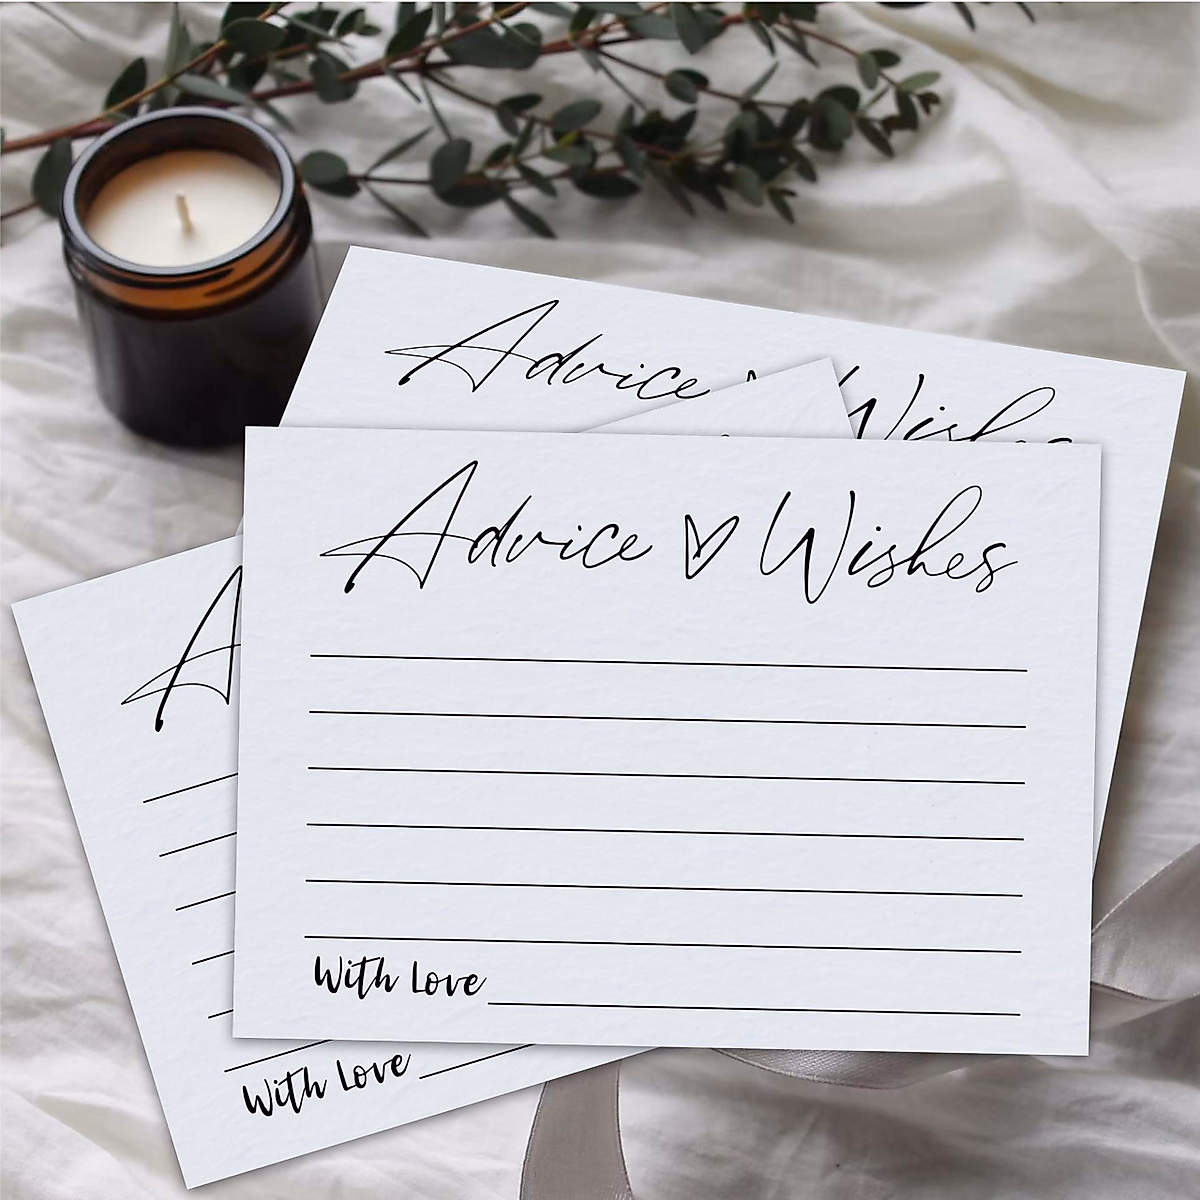 Advice Wishes
Advice ♡ Wishes
A
With Love
With Love